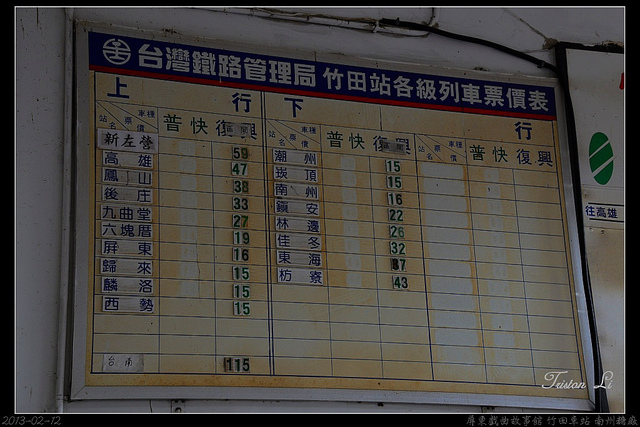 台灣鐵路管理局 竹田站各級列車票價表
上行 下行
站名 票價 車種 普快 復興 區間 站名 票價 車種 普快 復興 區間 站名 票價 車種 普快 復興
新左營 59 潮州 15
高雄 47 崁頂 15
鳳山 38 南州 16
後庄 33 鎮安 22
九曲堂 27 林邊 26
六塊厝 19 佳冬 32
屏東 16 東海 37
歸來 15 枋寮 43
麟洛 15
西勢 15
台南 115
往高雄
Triston Li
2013-02-12
屏東戲曲故事館 竹田車站 南州糖廠